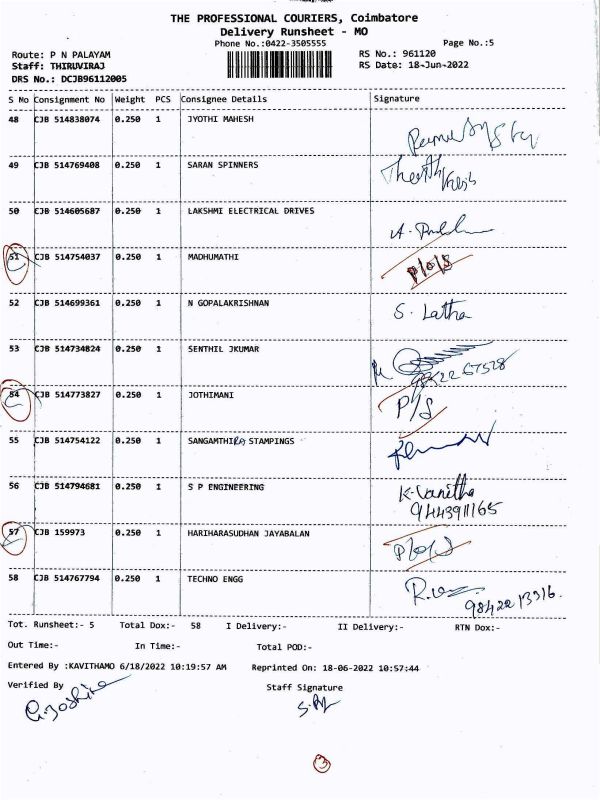 THE PROFESSIONAL COURIERS, Coimbatore
Delivery Runsheet - MO
Phone No.:0422-3505555 Page No.:5
Route: P N PALAYAM RS No.: 961120
Staff: THIRUVIRAJ RS Date: 18-Jun-2022
DRS No.: DCJB96112005
S No Consignment No Weight PCS Consignee Details Signature
48 CJB 514838074 0.250 1 JYOTHI MAHESH
49 CJB 514769408 0.250 1 SARAN SPINNERS
50 CJB 514605687 0.250 1 LAKSHMI ELECTRICAL DRIVES
51 CJB 514754037 0.250 1 MADHUMATHI P/o/S
52 CJB 514699361 0.250 1 N GOPALAKRISHNAN S. Latha
53 CJB 514734824 0.250 1 SENTHIL JKUMAR
54 CJB 514773827 0.250 1 JOTHIMANI P/S
55 CJB 514754122 0.250 1 SANGAMTHIRA STAMPINGS
56 CJB 514794681 0.250 1 S P ENGINEERING K. Vanitha
9443911165
57 CJB 159973 0.250 1 HARIHARASUDHAN JAYABALAN P/o/S
58 CJB 514767794 0.250 1 TECHNO ENGG
9842213316.
Tot. Runsheet:- 5 Total Dox:- 58 I Delivery:- II Delivery:- RTN Dox:-
Out Time:- In Time:- Total POD:-
Entered By :KAVITHAMO 6/18/2022 10:19:57 AM Reprinted On: 18-06-2022 10:57:44
Verified By Staff Signature
3